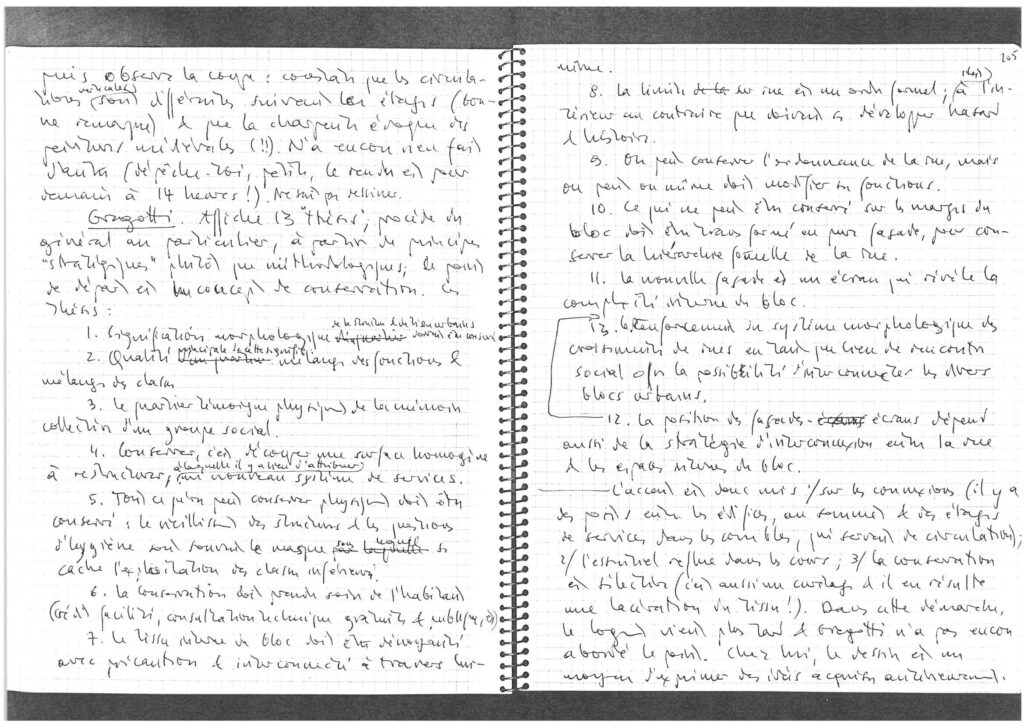 puis observe la coupe : constate que les circula-
tions verticales sont différentes suivant les étages (bon-
ne remarque) & que la charpente évoque des
peintures médiévales (!!). N'a encore rien fait
d'autre (dépêche-toi, petite, le rendu est pour
demain à 14 heures !). Ne sait pas dessiner.
Gregotti. Affiche 13 "thèses", procède du
général au particulier, à partir de principes
"stratégiques" plutôt que méthodologiques ; le point
de départ est un concept de conservation. Ces
thèses :
1. Signification morphologique de la structure & du tissu urbains doivent être conservés
2. Qualité principale de cette signific. : mélange des fonctions &
mélange des classes
3. Le quartier témoigne physiqt de la mémoire
collective d'un groupe social.
4. Conserver, c'est découper une surface homogène
à restructurer, à laquelle il y a lieu d'attribuer un nouveau système de services.
5. Tout ce qu'on peut conserver physiqt doit être
conservé : le vieillisst des structures & les questions
d'hygiène sont souvent le masque sous lequel se
cache l'exploitation des classes inférieures.
6. La conservation doit prendre soin de l'habitant
(crédit facilité, consultation technique gratuite & publique, etc)
7. Le tissu interne du bloc doit être
avec précaution & interconnecté à travers lui-
205
même.
8. La limite sur rue est un ordre formel ; à l'in-
térieur au contraire que doivent se développer hasard
& histoire.
9. On peut conserver l'ordonnance de la rue, mais
on peut ou même doit modifier ses fonctions.
10. Ce qui ne peut être conservé sur les marges du
bloc doit être transformé en pure façade, pour con-
server la hiérarchie formelle de la rue.
11. La nouvelle façade est un écran qui révèle la
complexité interne du bloc.
13. Renforcement du système morphologique des
croisements de rues en tant que lieu de rencontre
social & la possibilité d'interconnecter les divers
blocs urbains.
12. La position des façades-écrans dépend
aussi de la stratégie d'interconnexion entre la rue
& les espaces internes du bloc.
L'accent est donc mis 1/ sur les connexions (il y a
des ponts entre les édifices, au sommet & des étages
de services dans les combles, qui servent de circulation) ;
2/ l'essentiel reflue dans les cours ; 3/ la conservation
est sélective (c'est aussi un curetage & il en résulte
une lacération du tissu !). Dans cette démarche,
le logement vient plus tard & Gregotti n'a pas encore
abordé le point. Chez lui, le dessin est un
moyen d'exprimer des idées acquises antérieurement.